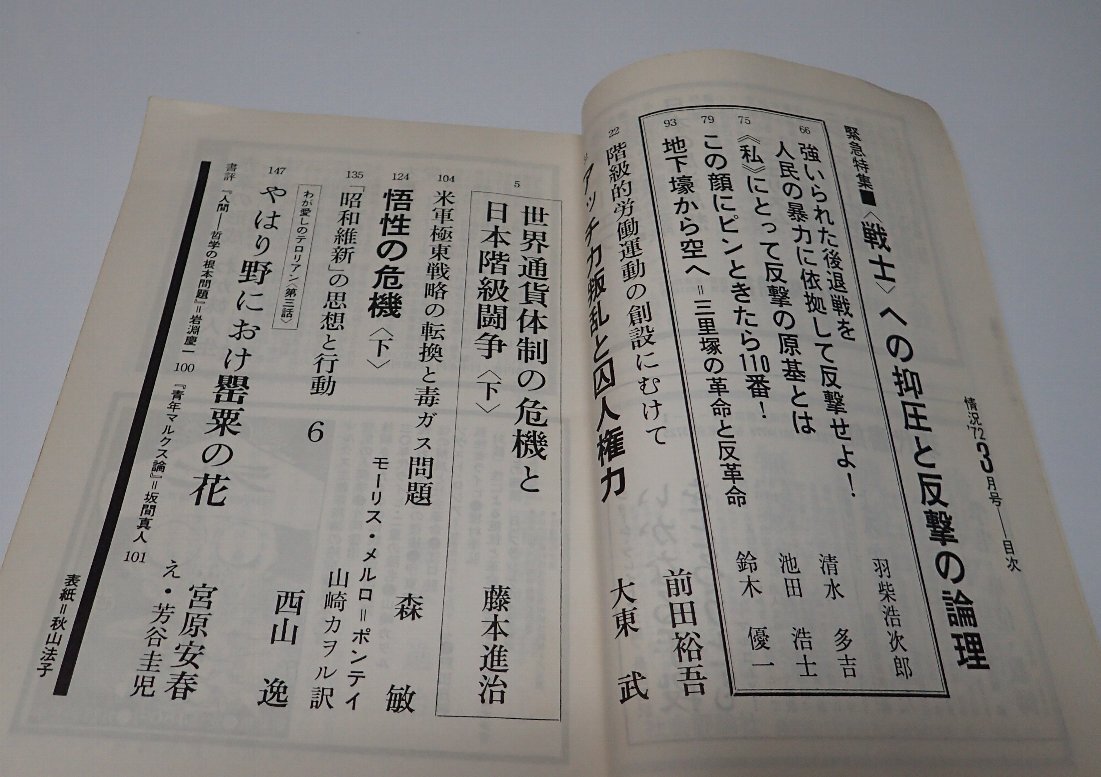 情況'72 3月号──目次
緊急特集■〈戦士〉への抑圧と反撃の論理
66 強いられた後退戦を
人民の暴力に依拠して反撃せよ！ 羽柴浩次郎
75 《私》にとって反撃の原基とは 清水多吉
79 この顔にピンときたら110番！ 池田浩士
93 地下壕から空へ＝三里塚の革命と反革命 鈴木優一
22 階級的労働運動の創設にむけて 前田裕吾
アッチカ叛乱と囚人権力 大東武
5 世界通貨体制の危機と
日本階級闘争〈下〉 藤本進治
104 米軍極東戦略の転換と毒ガス問題 森敏
124 悟性の危機〈下〉 モーリス・メルロ＝ポンティ
山崎カヲル訳
135 「昭和維新」の思想と行動 6 西山逸
わが愛しのテロリアン〈第三話〉
147 やはり野におけ罌粟の花 宮原安春
え・芳谷圭児
書評 『人間──哲学の根本問題』＝岩淵慶一 100 『青年マルクス論』＝坂間真人 101
表紙＝秋山法子